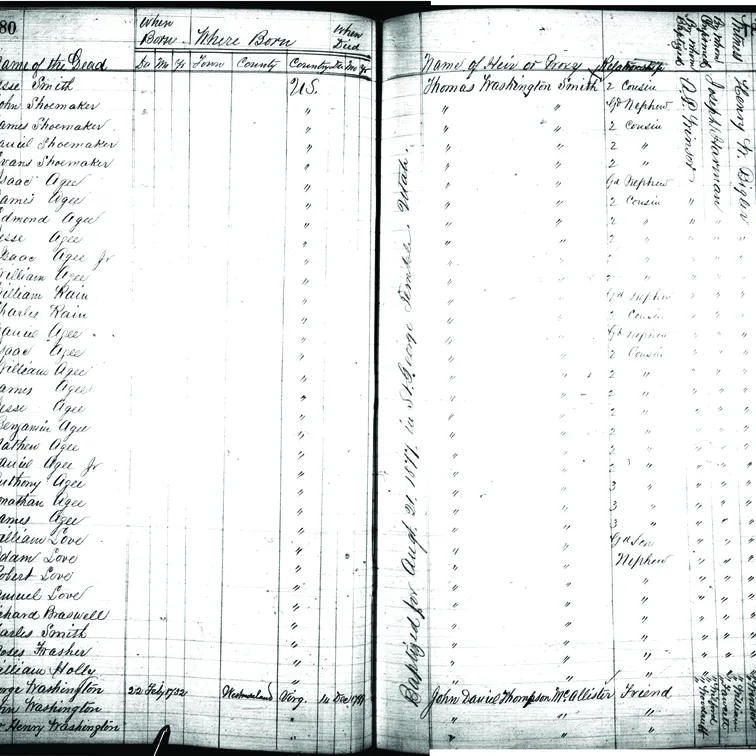 80
When Born
Where Born
When Died
Name of the Dead Da Mo Yr Town County Country Da Mo Yr
esse Smith U.S.
ohn Shoemaker "
ames Shoemaker "
aniel Shoemaker "
Evans Shoemaker "
Isaac Agee "
James Agee "
Edmond Agee "
esse Agee "
Isaac Agee Jr "
William Agee "
William Rain "
Charles Rain "
aniel Agee "
Isaac Agee "
William Agee "
ames Agee "
esse Agee "
Benjamin Agee "
athew Agee "
aniel Agee Jr "
nthony Agee "
onathan Agee "
ames Agee "
William Love "
Adam Love "
Robert Love "
amuel Love "
ichard Braswell "
harles Smith "
oses Frasher "
William Holly "
orge Washington 22 Feby 1732 Westmoreland Virg. 14 Dec 1799
hn Washington "
Henry Washington "
Baptized for Augt. 21. 1877. in St. George Temple. Utah.
Name of Heir or Proxy Relationship
Thomas Washington Smith 2 Cousin
" " Gd Nephew
" " 2 Cousin
" " 2 "
" " 2 "
" " Gd Nephew
" " 2 Cousin
" " 2 "
" " 2 "
" " 2 "
" " 2 "
" " Gd Nephew
" " 2 Cousin
" " Gd Nephew
" " 2 Cousin
" " 2 "
" " 2 "
" " 2 "
" " 2 "
" " 2 "
" " 2 "
" " 3 "
" " 3 "
" " 3 "
" " Gd Son
" " Nephew
" " "
" " "
" " "
" " "
" " "
" " "
John Daniel Thompson McAllister Friend
" " "
" " "
By whom Baptized
By whom Confirmed
Joseph Harman
Henry W. Bigler